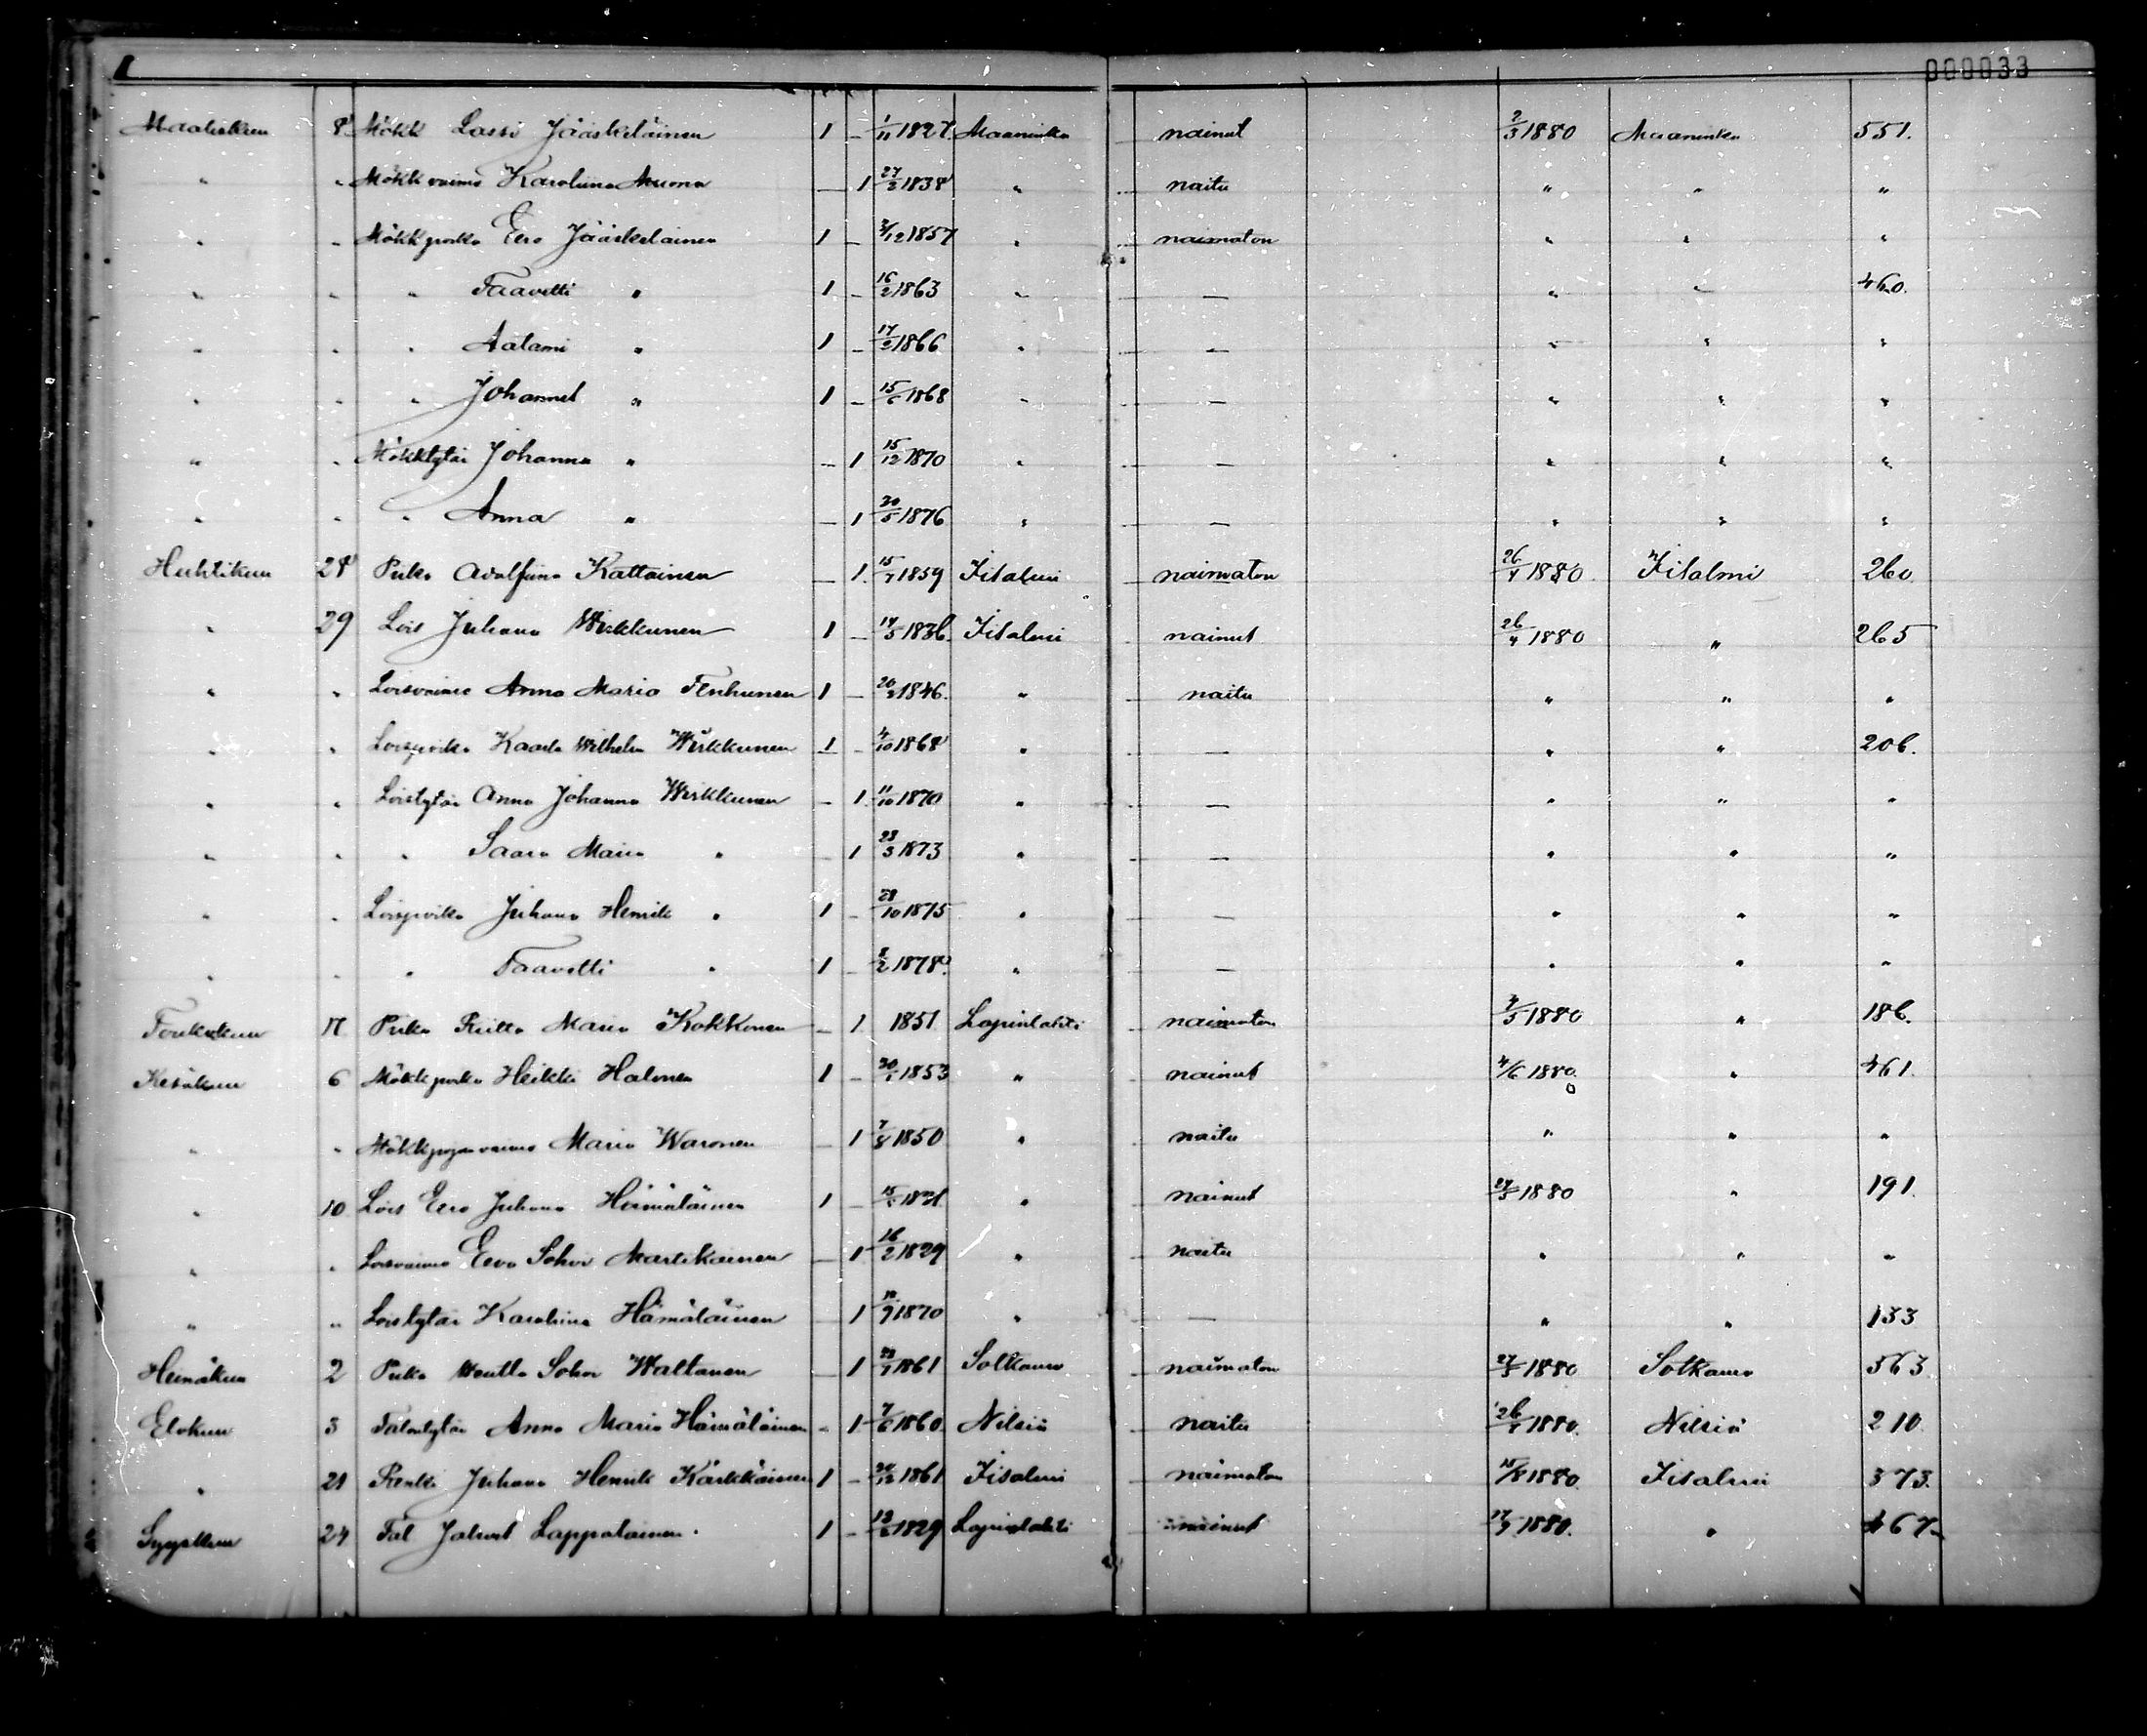 1
000033
Maaliskuu 8 Mökk Lassi Jääskeläinen 1 – 1/11 1827. Maaninka nainut 2/3 1880 Maaninka 551.
" " Mökkvaimo Karoliina Muona – 1 27/2 1838 " naitu " " "
" " Mökkpoika Eero Jääskeläinen 1 – 3/12 1857 " naimaton " " "
" " " Taavetti " 1 – 16/2 1863 " — " " 460.
" " " Aatami " 1 – 17/2 1866 " — " " "
" " " Johannes " 1 – 15/6 1868 " — " " "
" " Mökktytär Johanna " – 1 15/12 1870 " — " " "
" " " Anna " – 1 30/5 1876 " — " " "
Huhtikuu 28 Piika Adolfiina Kattainen – 1. 15/7 1859 Iisalmi naimaton 26/4 1880. Iisalmi 260
" 29 Lois Juhana Wirkkunen 1 – 14/5 1836. Iisalmi nainut 26/4 1880 " 265
" " Loisvaimo Anna Maria Tenhunen 1 – 20/2 1846. " naitu " " "
" " Loispoika Kaarle Wilhelm Wirkkunen 1 – 4/10 1868 " — " " 206.
" " Loistytär Anna Johanna Wirkkunen – 1. 11/10 1870 " — " " "
" " " Saara Maria " – 1 23/3 1873 " — " " "
" " Loispoika Juhana Henrik " 1 – 28/10 1875 " — " " "
" " " Taavetti " 1 – 8/2 1878. " — " " "
Toukokuu 17 Piika Riitta Maria Kokkonen – 1 1851 Lapinlahti naimaton 3/5 1880 " 186.
Kesäkuu 6 Mökkpoika Heikki Halonen 1 – 30/1 1853 " nainut 4/6 1880. " 461.
" " Mökkpojanvaimo Maria Waronen – 1 7/8 1850 " naitu " " "
" 10 Lois Eero Juhana Hämäläinen 1 – " nainut 27/5 1880 " 191.
" " Loisvaimo Eeva Sohvi Martikainen – 1 16/2 1829 " naitu " " "
" " Loistytär Karoliina Hämäläinen 1 1870 " — " " 133
Heinäkuu 2 Piika Sohvi Waltanen – 1 1861 Sotkamo naimaton 27/5 1880 Sotkamo 563
Elokuu 3 Talontytär Anna Maria Hämäläinen – 1 7/6 1860. Nilsiä naitu 1880. Nilsiä 210
" 21 Renki Juhana Henrik Kärkkäinen 1 – 1861 Iisalmi naimaton 1880. Iisalmi 373.
Syyskuu 24 Tal Lappalainen 1 – 1829 Lapinlahti nainut 1880. " 467